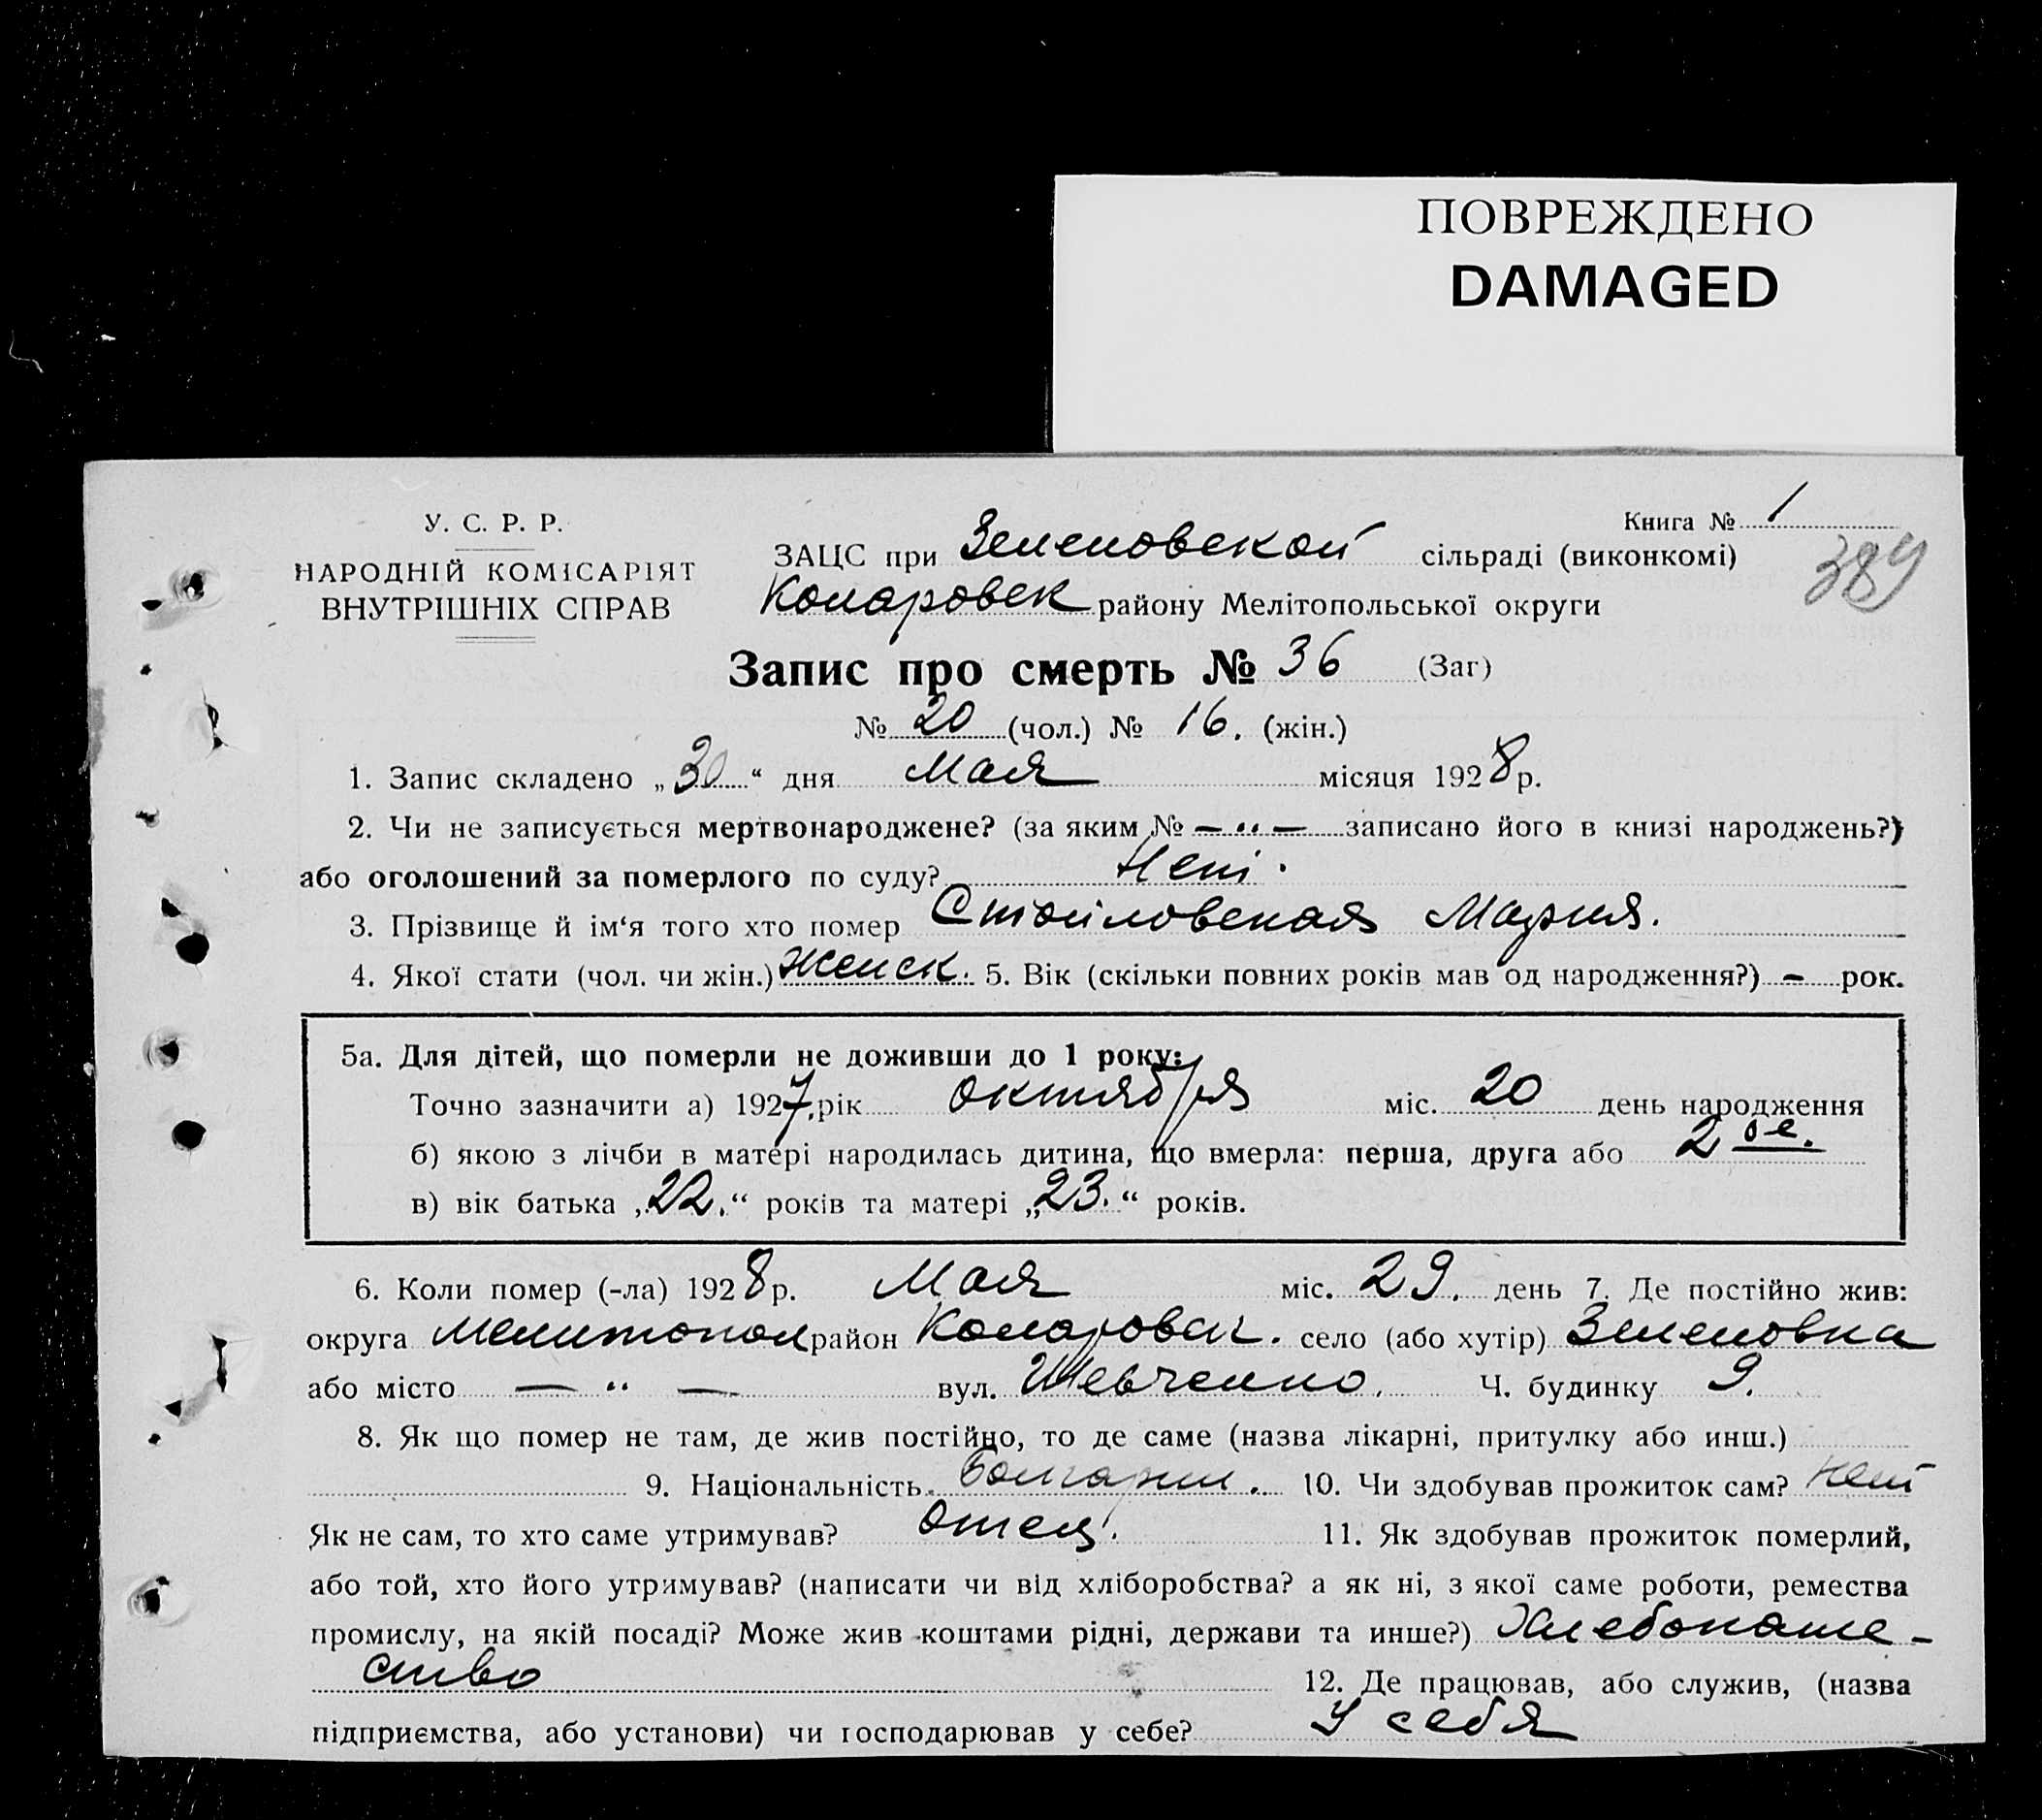 ПОВРЕЖДЕНО
DAMAGED
У. С. Р. Р.
НАРОДНІЙ КОМІСАРІЯТ
ВНУТРІШНІХ СПРАВ
Книга № 1
389
ЗАЦС при Зеленовской сільраді (виконкомі)
Коларовск району Мелітопольської округи
Запис про смерть № 36 (Заг)
№ 20 (чол.) № 16. (жін.)
1. Запис складено „30“ дня Мая місяця 1928 р.
2. Чи не записується мертвонароджене? (за яким № — „ — записано його в книзі народжень?)
або оголошений за померлого по суду? Нет.
3. Прізвище й ім‘я того хто помер Стойловская Мария.
4. Якої стати (чол. чи жін.) Женск. 5. Вік (скільки повних років мав од народження?) — рок.
5а. Для дітей, що померли не доживши до 1 року:
Точно зазначити а) 1927, рік октября міс. 20 день народження
б) якою з лічби в матері народилась дитина, що вмерла: перша, друга або 2 ое.
в) вік батька „22.“ років та матері „23.“ років.
6. Коли помер (-ла) 1928 р. Мая міс. 29. день 7. Де постійно жив:
округа Мелитопол район Коларовск. село (або хутір) Зеленовка
або місто — „ — вул. Шевченко. Ч. будинку 9.
8. Як що помер не там, де жив постійно, то де саме (назва лікарні, притулку або инш.)
9. Національність Болгарин. 10. Чи здобував прожиток сам? Нет
Як не сам, то хто саме утримував? Отец. 11. Як здобував прожиток померлий,
або той, хто його утримував? (написати чи від хліборобства? а як ні, з якої саме роботи, ремества
промислу, на якій посаді? Може жив коштами рідні, держави та инше?) Хлебопаше-
ство 12. Де працював, або служив, (назва
підприємства, або установи) чи господарював у себе? У себя